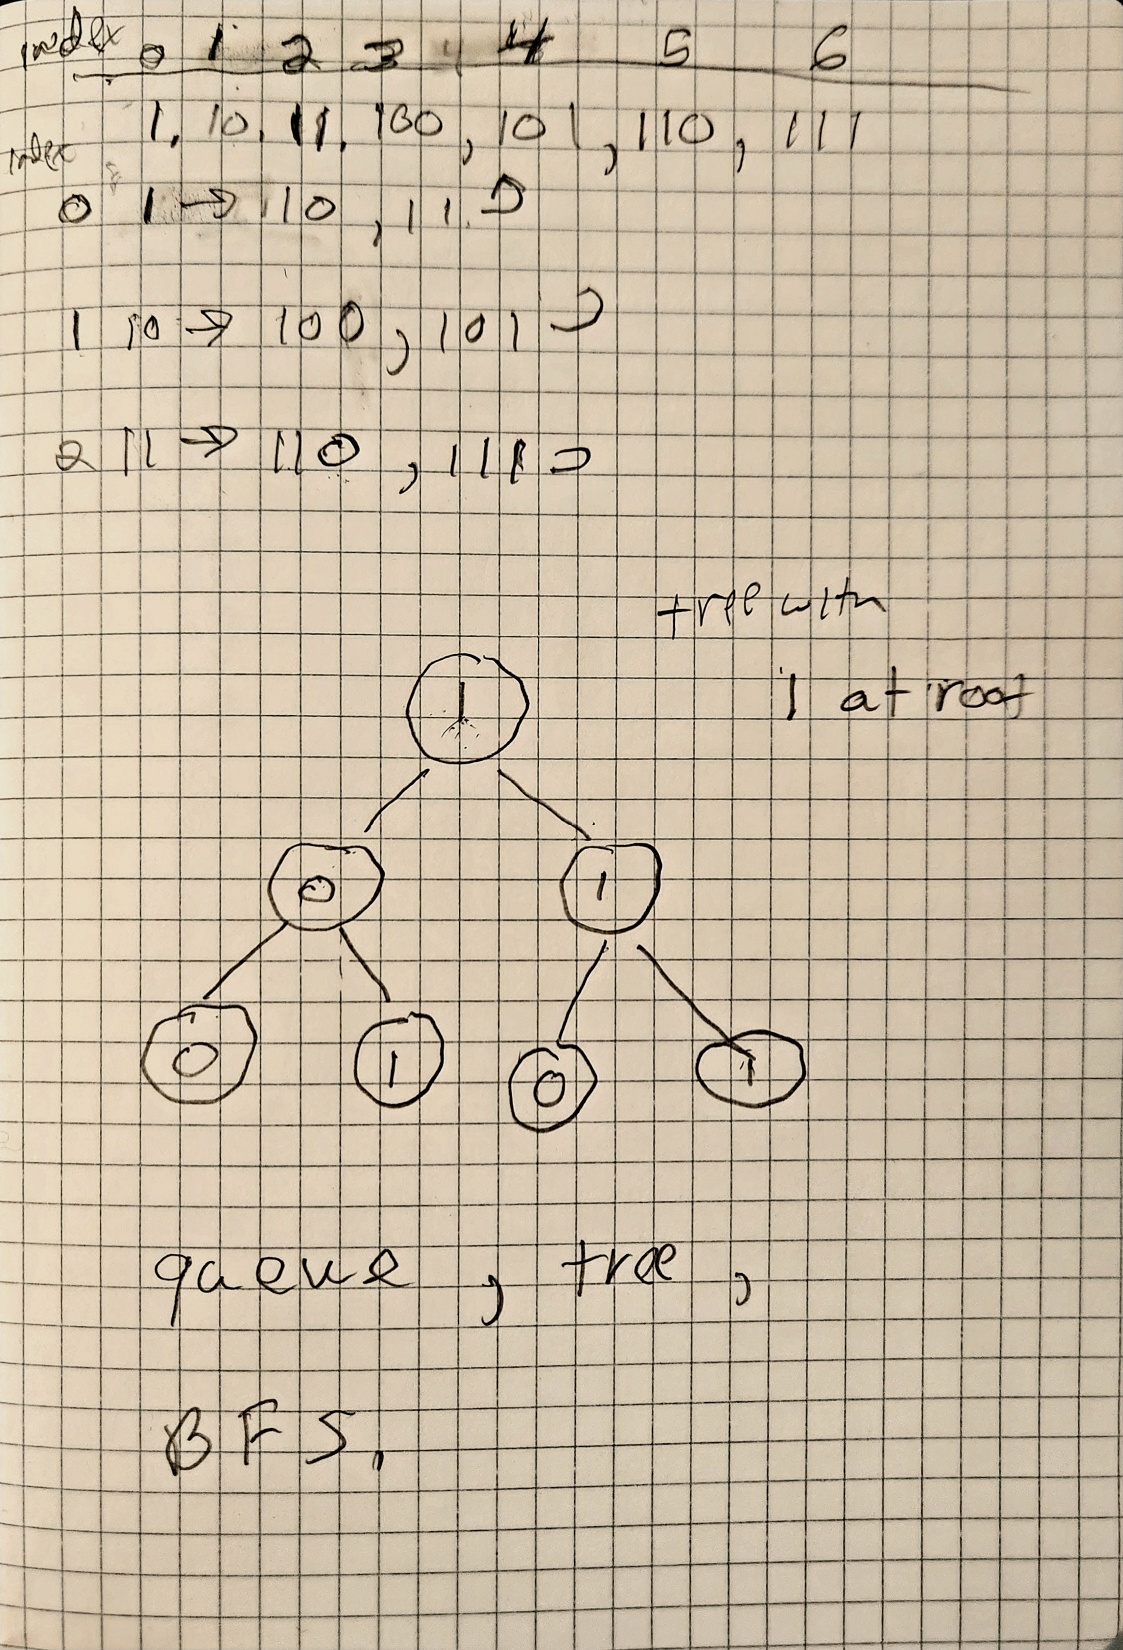 index 0 1 2 3 4 5 6
1, 10, 11, 100, 101, 110, 111
index
0 1 → 10, 11
1 10 → 100, 101
2 11 → 110, 111
tree with
1 at root
1
0 1
0 1 0 1
queue, tree,
BFS,